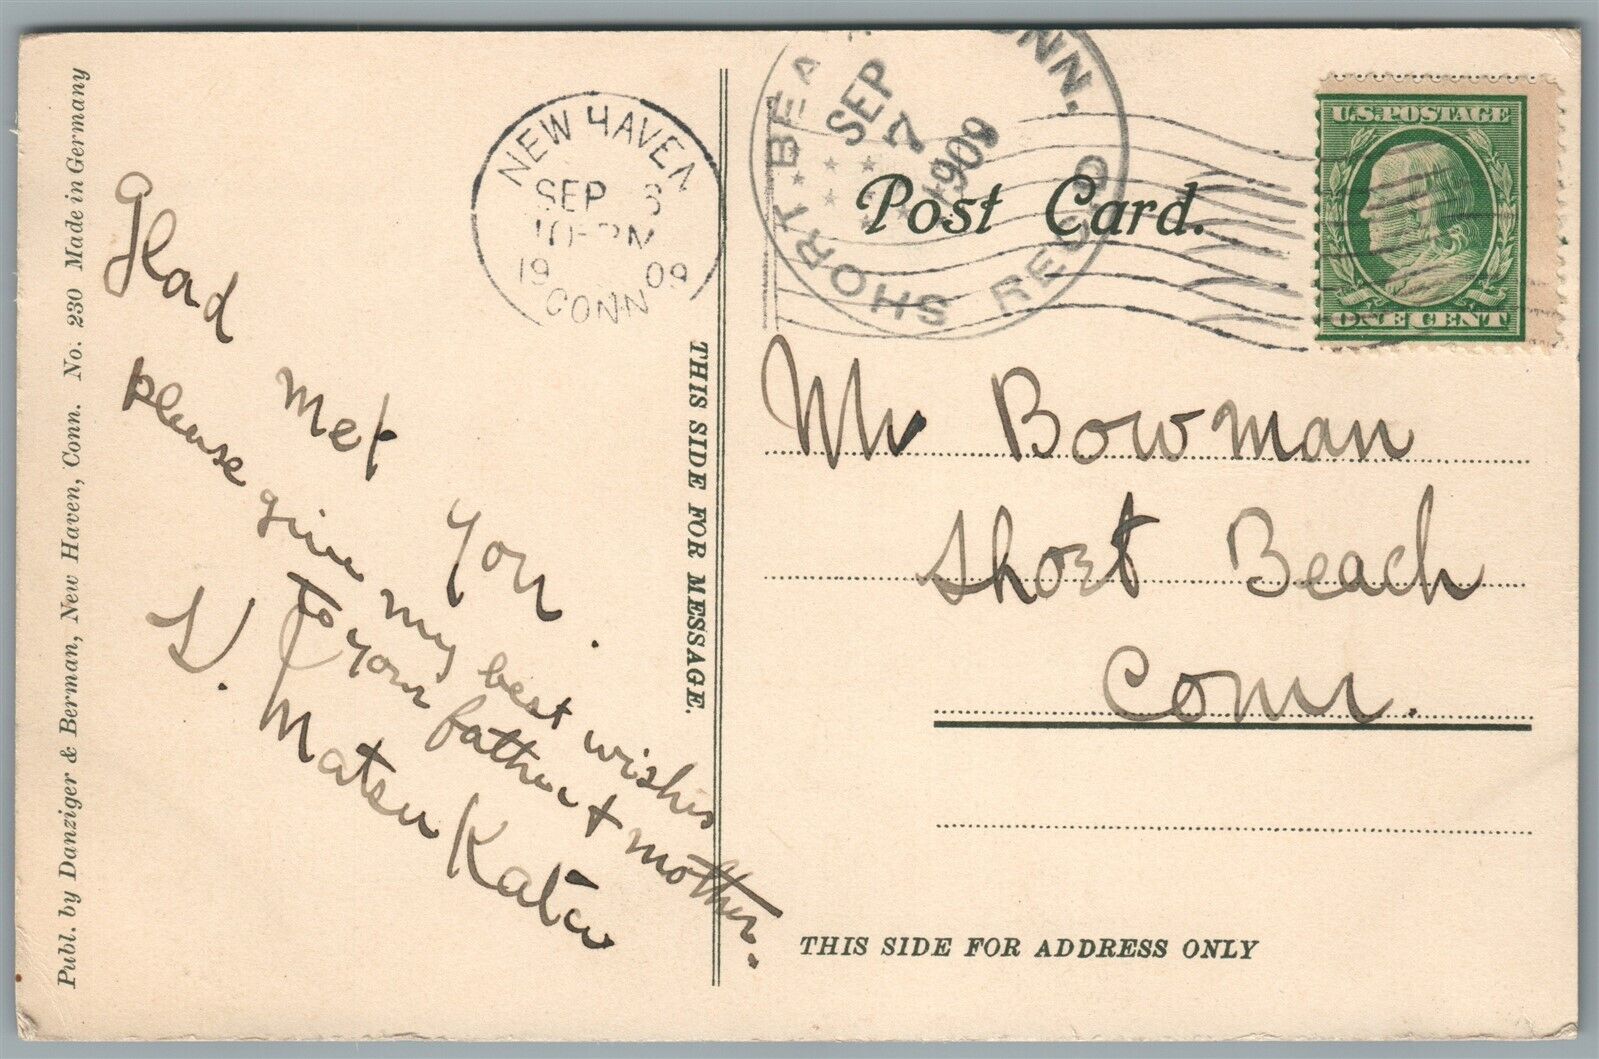 Publ. by Danziger & Berman, New Haven, Conn. No. 230 Made in Germany
NEW HAVEN
SEP 6
10-PM
1909
CONN
SHORT BEA CONN.
SEP
7
1909
REC'D
U.S. POSTAGE
ONE CENT
Post Card.
Glad met you.
please give my best wishes
to your father & mother.
THIS SIDE FOR MESSAGE.
Mr Bowman
Short Beach
Conn.
THIS SIDE FOR ADDRESS ONLY